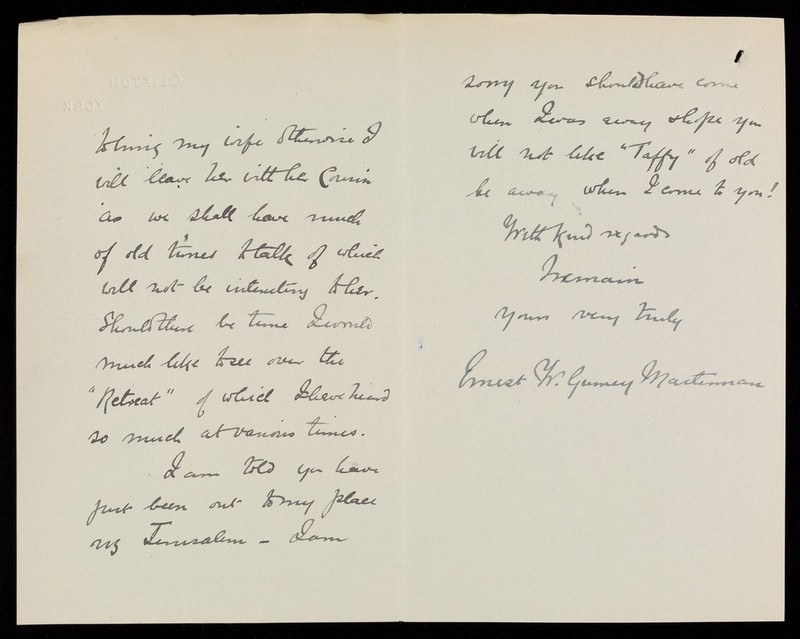 CLIFTON
YORK
to bring my wife otherwise I
will leave her with her Cousin
as we shall have much
of old times to talk of which
will not be interesting to her.
Should there be time I would
much like to see over the
"Retreat" of which I have heard
so much at various times.
I am told you have
just been out to my place
Jerusalem - I am
sorry you should have come
when I was away & hope you
will not like "Taffy" of old
be away when I come to you!
With kind regards
I remain
yours very truly
Ernest W. Gurney Masterman